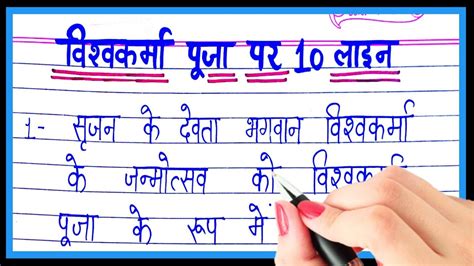 विश्वकर्मा पूजा पर 10 लाइन
1- सृजन के देवता भगवान विश्वकर्मा
के जन्मोत्सव को विश्वकर्मा
पूजा के रूप में